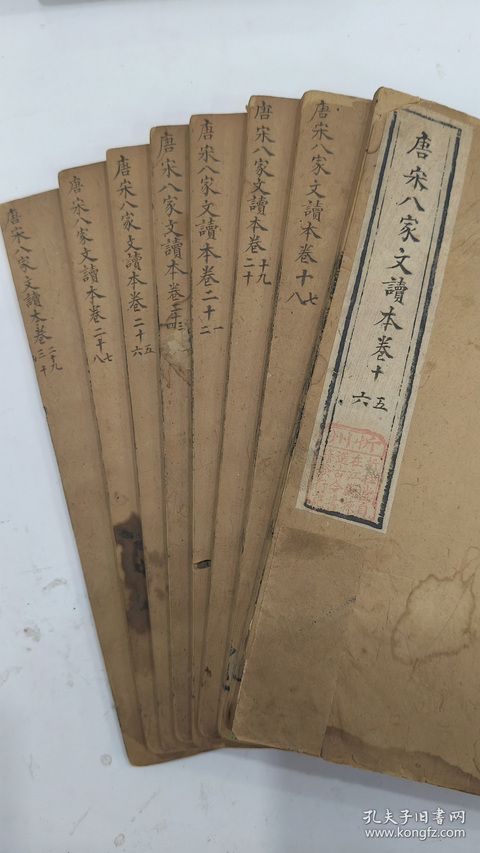 唐宋八家文讀本卷十五六
唐宋八家文讀本卷十七八
唐宋八家文讀本卷十九二十
唐宋八家文讀本卷二十一二
唐宋八家文讀本卷二十三
唐宋八家文讀本卷二十五六
唐宋八家文讀本卷二十七八
唐宋八家文讀本卷二十九三十
忻州
孔夫子旧书网
www.kongfz.com